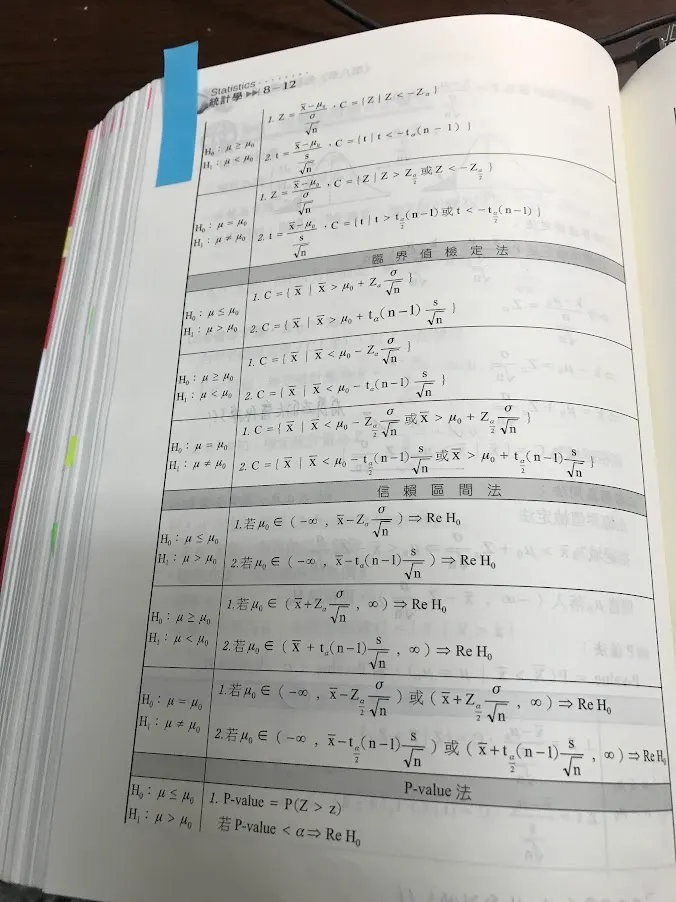 Statistics
統計學 ▶▶ 8-12
H₀：μ ≥ μ₀
H₁：μ < μ₀
1. Z = (x̄-μ₀)/(σ/√n) , C = { Z | Z < -Z_α }
2. t = (x̄-μ₀)/(s/√n) , C = { t | t < -t_α(n-1) }
H₀：μ = μ₀
H₁：μ ≠ μ₀
1. Z = (x̄-μ₀)/(σ/√n) , C = { Z | Z > Z_(α/2) 或 Z < -Z_(α/2) }
2. t = (x̄-μ₀)/(s/√n) , C = { t | t > t_(α/2)(n-1) 或 t < -t_(α/2)(n-1) }
臨界值檢定法
H₀：μ ≤ μ₀
H₁：μ > μ₀
1. C = { x̄ | x̄ > μ₀ + Z_α σ/√n }
2. C = { x̄ | x̄ > μ₀ + t_α(n-1) s/√n }
H₀：μ ≥ μ₀
H₁：μ < μ₀
1. C = { x̄ | x̄ < μ₀ - Z_α σ/√n }
2. C = { x̄ | x̄ < μ₀ - t_α(n-1) s/√n }
H₀：μ = μ₀
H₁：μ ≠ μ₀
1. C = { x̄ | x̄ < μ₀ - Z_(α/2) σ/√n 或 x̄ > μ₀ + Z_(α/2) σ/√n }
2. C = { x̄ | x̄ < μ₀ - t_(α/2)(n-1) s/√n 或 x̄ > μ₀ + t_(α/2)(n-1) s/√n }
信賴區間法
H₀：μ ≤ μ₀
H₁：μ > μ₀
1.若μ₀ ∈ ( -∞ , x̄-Z_α σ/√n ) ⇒ Re H₀
2.若μ₀ ∈ ( -∞ , x̄-t_α(n-1) s/√n ) ⇒ Re H₀
H₀：μ ≥ μ₀
H₁：μ < μ₀
1.若μ₀ ∈ ( x̄+Z_α σ/√n , ∞ ) ⇒ Re H₀
2.若μ₀ ∈ ( x̄ + t_α(n-1) s/√n , ∞ ) ⇒ Re H₀
H₀：μ = μ₀
H₁：μ ≠ μ₀
1.若μ₀ ∈ ( -∞ , x̄-Z_(α/2) σ/√n ) 或 ( x̄+Z_(α/2) σ/√n , ∞ ) ⇒ Re H₀
2.若μ₀ ∈ ( -∞ , x̄-t_(α/2)(n-1) s/√n ) 或 ( x̄+t_(α/2)(n-1) s/√n , ∞ ) ⇒ Re H₀
P-value 法
H₀：μ ≤ μ₀
H₁：μ > μ₀
1. P-value = P(Z > z)
若 P-value < α ⇒ Re H₀